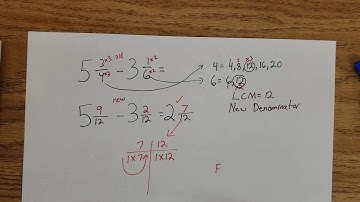 5 3×3/4×3 old − 3 1×2/6×2 =
4 = 4, 8, 12, 16, 20
6 = 6, 12
LCM = 12
New Denominator
new
5 9/12 − 3 2/12 = 2 7/12
7 | 12
1×7 | 1×12
F